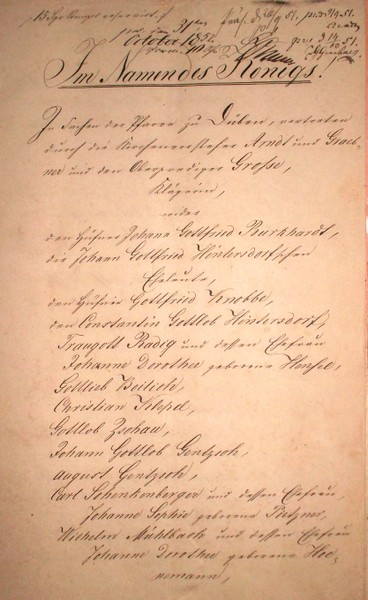 31ten
October 1851.
Im Namen des Königs!
In Sachen der Pfarre zu Düben, vertreten
durch die Kirchenvorsteher Arndt und Graeb-
ner und den Oberprediger Grosse,
Klägerin,
wider
den Hüfner Johann Gottfried Burkhardt,
die Johann Gottfried Hintersdorf'schen
Eheleute,
den Hüfner Gottfried Knobbe,
den Constantin Gottlob Hintersdorf,
Traugott Radig und dessen Ehefrau
Johanne Dorothee geborene Hensel,
Gottlieb
Christian
Gottlob Zschau,
Johann Gottlob Gentzsch,
August Gentzsch,
Carl Schenkenberger und dessen Ehefrau,
Johanne Sophie geborene
Wilhelm Mühlbach und dessen Ehefrau
Johanne Dorothee geborene